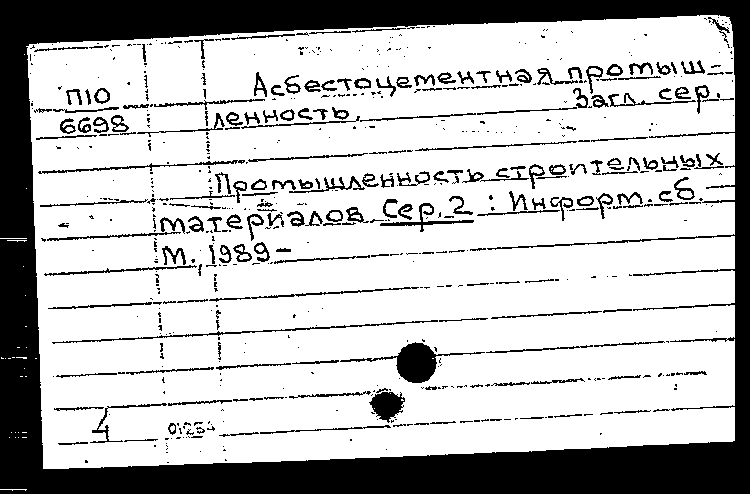 П10
6698
Асбестоцементная промыш-
ленность. Загл. сер.
Промышленность строительных
материалов. Сер. 2 : Информ. сб. —
М., 1989 –
4